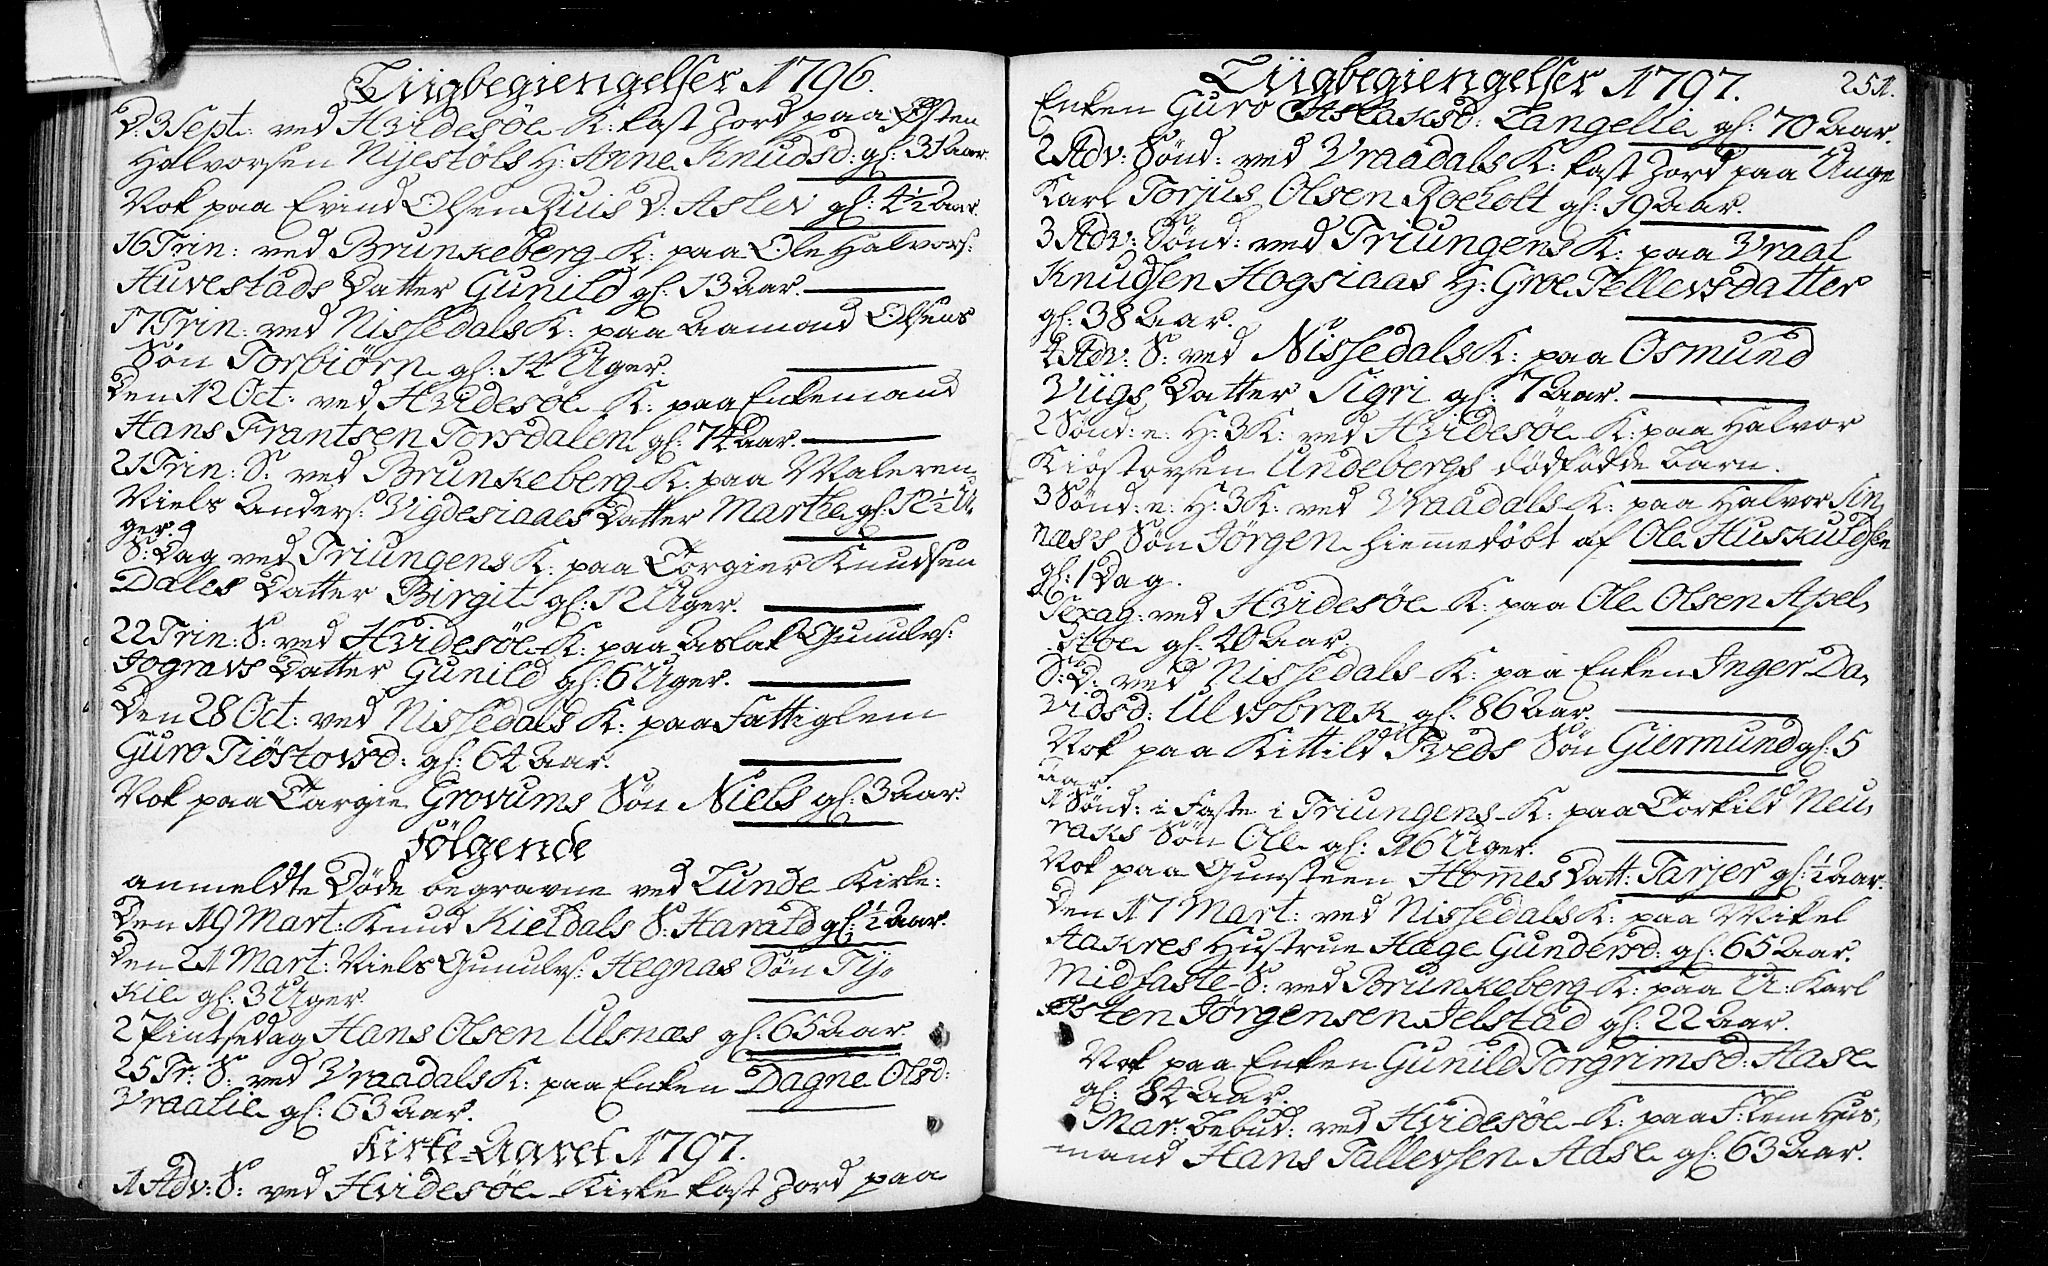 Liigbegiengelser 1796.
D: 3 Sept: ved Hvidesöe K: kast Jord paa Østen
Halvorsen Nijestöls H: Anne Knudsd: gl: 31 Aar.
Nok paa Evind Olsen Ruis D: Aslev gl: 4½ Aar.
16 Trin: ved Brunkeberg K: paa Ole Halvors:
Huvestads Datter Gunild gl: 13 Aar.
17 Trin: ved Nissedals K: paa Aamond Olsens
Søn Torbiörn gl: 14 Uger.
Den 12 Oct: ved Hvidesöe K: paa Enkemand
Hans Frantsen Torsdalen gl: 74 Aar.
21 Trin: S: ved Brunkeberg K: paa Maleren
Niels Anders: Vigdesiaaes Datter Marthe gl: 12½ U-
ger.
S: Dag ved Triungens K: paa Torgier Knudsen
Dales Datter Birgit gl: 12 Uger.
22 Trin: S: ved Hvidesöe K: paa Aslak Gunuls:
Jogravs Datter Gunild gl: 6 Uger.
Den 28 Oct: ved Nissedals K: paa Fattiglem
Guro Tiöstovsd: gl: 64 Aar.
Nok paa Targie Grovums Søn Niels gl: 3 Aar.
Følgende
anmeldte Døde begravne ved Lunde Kirke:
Den 19 Mart: Knud Kieldals S: Harald gl: ½ Aar.
Den 21 Mart: Niels Gunuls: Hegnas Søn Ty-
kil gl: 3 Uger.
2 Pintsedag Hans Olsen Ulsnæs gl: 65 Aar.
25 Tr: S: ved Vraadals K: paa Enken Dagne Olsd:
Vraalie gl: 63 Aar.
Kirke-Aaret 1797.
1 Adv: S: ved Hvidesöe Kirke kast Jord paa
Liigbegiengelser 1797. 251.
Enken Guro Aslaksd: Langelie gl: 70 Aar.
2 Adv: Sönd: ved Vraadals K: kast Jord paa Unge
Karl Torjus Olsen Roeholt gl: 19 Aar.
3 Adv: Sönd: ved Triungens K: paa Vraal
Knudsen Hogsiaas H: Groe Tellevsdatter
gl: 38 Aar.
4 Adv: S: ved Nissedals K: paa Osmund
Viigs Datter Sigri gl: 7 Aar.
2 Sönd: e: H: 3 K: ved Hvidesöe K: paa Halvor
Kiöstovsen Undebergs dödfödde barn.
3 Sönd: e: H: 3 K: ved Vraadals K: paa Halvor Sin-
næs's Søn Jörgen hiem̄edöbt af Ole Huskuldsen
gl: 1 Dag.
Sexag: ved Hvidesöe K: paa Ole Olsen Apel-
stöe gl: 40 Aar.
S: D: ved Nissedals K: paa Enken Inger Da-
vidsd: Ulvsbræk gl: 86 Aar.
Nok paa Kittild Tveds Søn Giermund gl: 5
Aar.
1 Sönd: i Faste i Triungens K: paa Torkild Neu-
raks Søn Ole gl: 16 Uger.
Nok paa Gunsteen Hom̄es Datt: Tarjer gl: ½ Aar.
Den 17 Mart: ved Nissedals K: paa Mikel
Aakres Hustrue Hæge Gundersd: gl: 65 Aar.
Midfaste S: ved Brunkeberg K: paa U: Karl
Østen Jörgensen Jelstad gl: 22 Aar.
Nok paa Enken Gunild Torgrimsd: Aase
gl: 84 Aar.
Mar: bebud: ved Hvidesöe K: paa F: Lem Hus-
mand Hans Tallevsen Aase gl: 63 Aar.